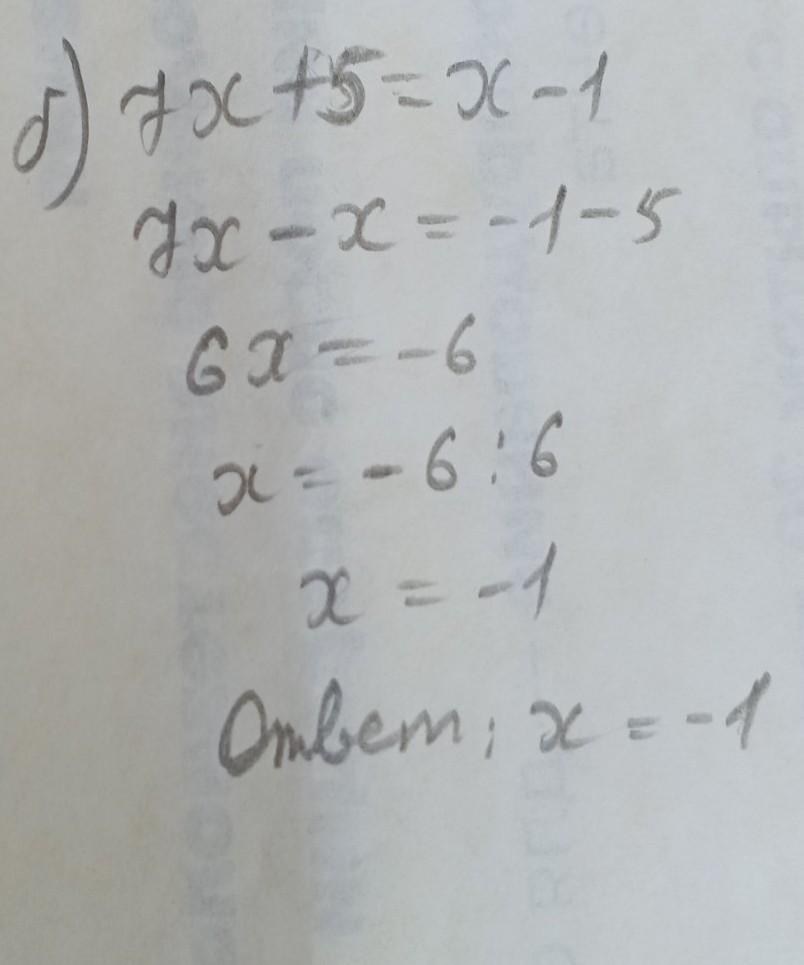 б) 7x + 5 = x - 1
7x - x = -1 - 5
6x = -6
x = -6 : 6
x = -1
Ответ: x = -1